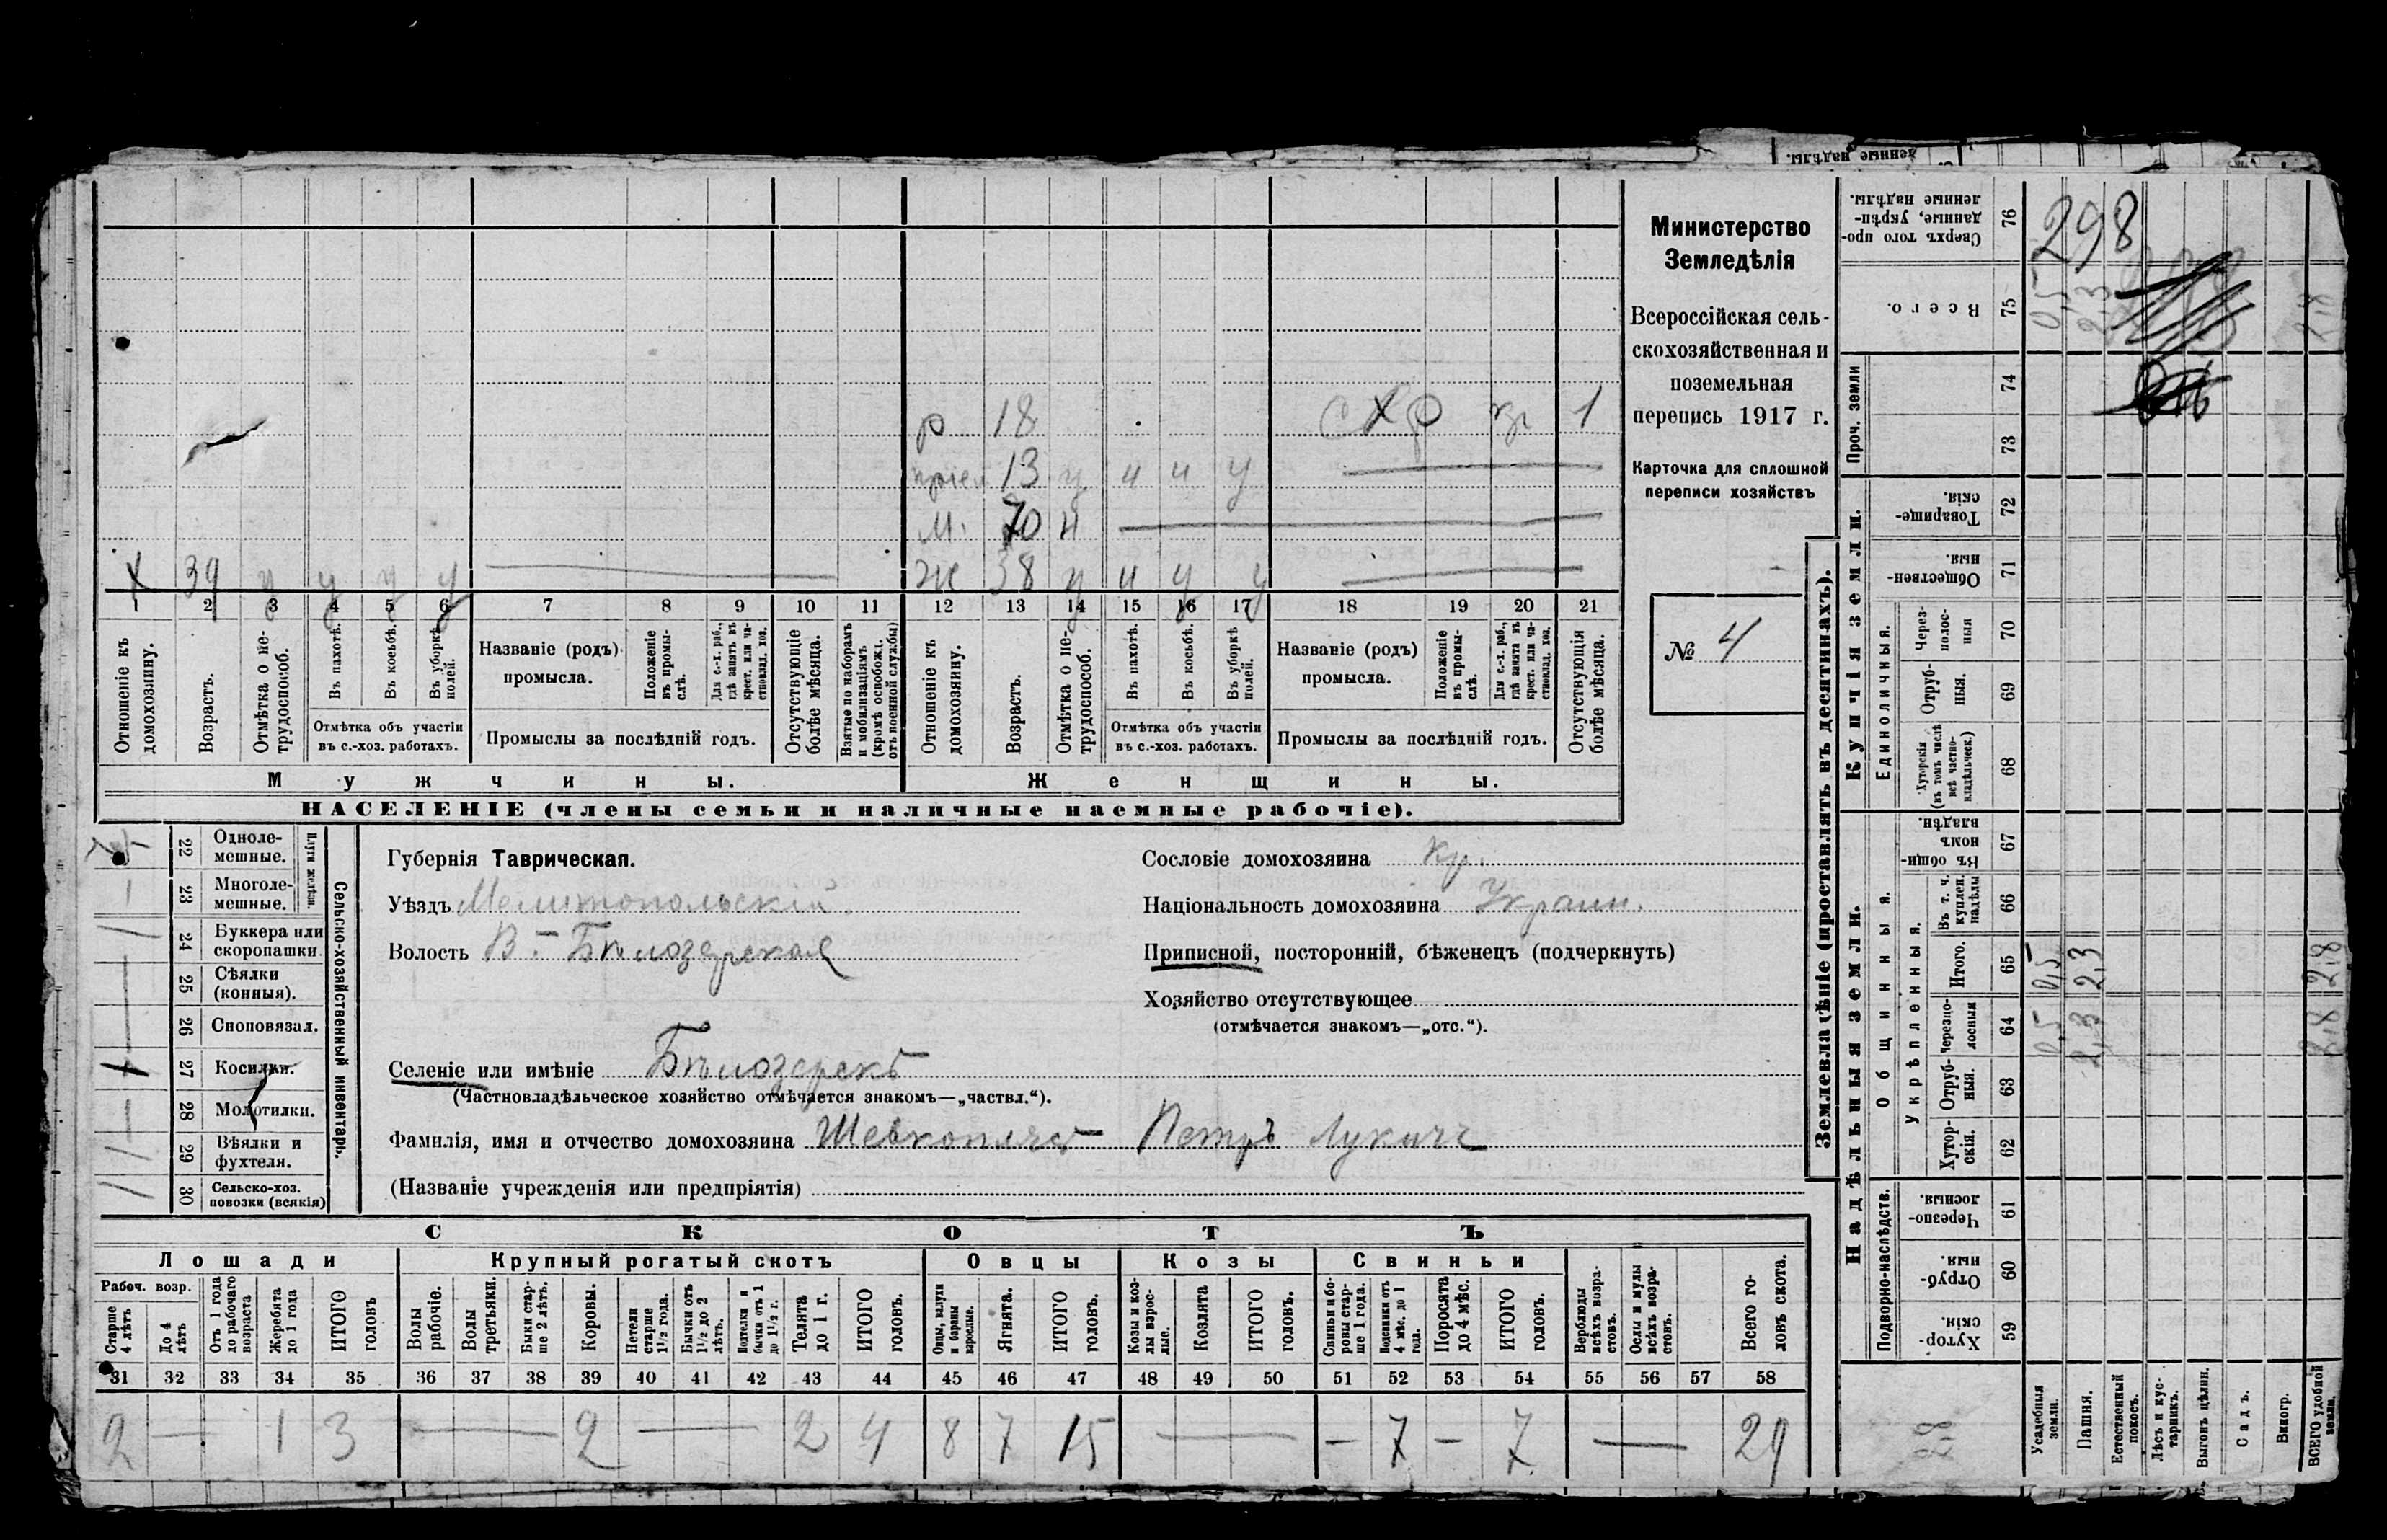 298
р 18 СХР 1
13 у и и у
м. 70 н
х 39 у у у у ж 38 у и у у
1 2 3 4 5 6 7 8 9 10 11 12 13 14 15 16 17 18 19 20 21
Отношеніе къ домохозяину.
Возрастъ.
Отмѣтка о не-трудоспособ.
Въ пахотѣ.
Въ косьбѣ.
Въ уборкѣ полей.
Отмѣтка объ участіи
въ с.-хоз. работахъ.
Названіе (родъ)
промысла.
Положеніе въ промы-слѣ.
Для с.-х. раб., гдѣ занятъ въ крест. или ча-стновлад. хоз.
Промыслы за послѣдній годъ.
Отсутствующіе болѣе мѣсяца.
Взятые по наборамъ и мобилизаціямъ (кромѣ освобожд. отъ военной службы)
Отношеніе къ домохозяину.
Возрастъ.
Отмѣтка о не-трудоспособ.
Въ пахотѣ.
Въ косьбѣ.
Въ уборкѣ полей.
Отмѣтка объ участіи
въ с.-хоз. работахъ.
Названіе (родъ)
промысла.
Положеніе въ промы-слѣ.
Для с.-х. раб., гдѣ занята въ крест. или ча-стновлад. хоз.
Промыслы за послѣдній годъ.
Отсутствующія болѣе мѣсяца.
Мужчины. Женщины.
НАСЕЛЕНІЕ (члены семьи и наличные наемные рабочіе).
Министерство
Земледѣлія
Всероссійская сель-
скохозяйственная и
поземельная
перепись 1917 г.
Карточка для сплошной
переписи хозяйствъ
№ 4
22 Одноле-мешные.
23 Многоле-мешные.
Плуги желѣзн.
24 Буккера или скоропашки.
25 Сѣялки (конныя).
26 Сноповязал.
27 Косилки.
28 Молотилки.
29 Вѣялки и фухтеля.
30 Сельско-хоз. повозки (всякія)
Сельско-хозяйственный инвентарь.
Губернія Таврическая.
Уѣздъ Мелитопольскій.
Волость В.-Бѣлозерская
Селеніе или имѣніе Бѣлозерскъ
(Частновладѣльческое хозяйство отмѣчается знакомъ—„частвл.“).
Фамилія, имя и отчество домохозяина Шевкоплясъ Петръ Лукичъ
(Названіе учрежденія или предпріятія)
Сословіе домохозяина кр.
Національность домохозяина Украин.
Приписной, посторонній, бѣженецъ (подчеркнуть)
Хозяйство отсутствующее
(отмѣчается знакомъ—„отс.“).
СКОТЪ
Лошади Крупный рогатый скотъ Овцы Козы Свиньи
Рабоч. возр.
Старше 4 лѣтъ
До 4 лѣтъ
Отъ 1 года до рабочаго возраста
Жеребята до 1 года
ИТОГО головъ
Волы рабочіе.
Волы третьяки.
Быки стар-ше 2 лѣтъ.
Коровы.
Нетели старше 1½ года.
Бычки отъ 1½ до 2 лѣтъ.
Подтелки и бычки отъ 1 до 1½ г.
Телята до 1 г.
ИТОГО головъ.
Овцы, валухи и бараны взрослые.
Ягнята.
ИТОГО головъ.
Козы и коз-лы взрос-лые.
Козлята
ИТОГО головъ.
Свиньи и бо-ровы стар-ше 1 года.
Подсвинки отъ 4 мѣс. до 1 года.
Поросята до 4 мѣс.
ИТОГО головъ.
Верблюды всѣхъ возра-стовъ.
Ослы и мулы всѣхъ возра-стовъ.
Всего го-ловъ скота.
31 32 33 34 35 36 37 38 39 40 41 42 43 44 45 46 47 48 49 50 51 52 53 54 55 56 57 58
2 — 1 3 — 2 — 2 4 8 7 15 — — 7 — 7 — 29
Землевладѣніе (проставлять въ десятинахъ).
Сверхъ того про-данные, укрѣп-ленные надѣлы. 76
Всего. 75 0,5 2,3 2,8
Проч. земли 74
73
Купчія земли.
Товарище-скія. 72
Обществен-ныя. 71
Единоличныя.
Через-полос-ныя 70
Отруб-ныя. 69
Хуторскія (въ томъ числѣ всѣ частно-владѣльческ.) 68
Надѣльныя земли.
Общинныя.
Въ общин-номъ владѣн. 67
Укрѣпленныя.
Въ т. ч. куплен. надѣлы 66
Итого. 65 0,5 2,3 2,8
Черезпо-лосныя 64 0,5 2,3 2,8
Отруб-ныя. 63
Хутор-скія. 62
Подворно-наслѣдств.
Черезпо-лосныя. 61
Отруб-ныя. 60
Хутор-скія. 59
Усадебныя земли.
Пашня.
Естественный покосъ.
Лѣсъ и кус-тарникъ.
Выгонъ цѣлин.
Садъ.
Виногр.
ВСЕГО удобной земли.